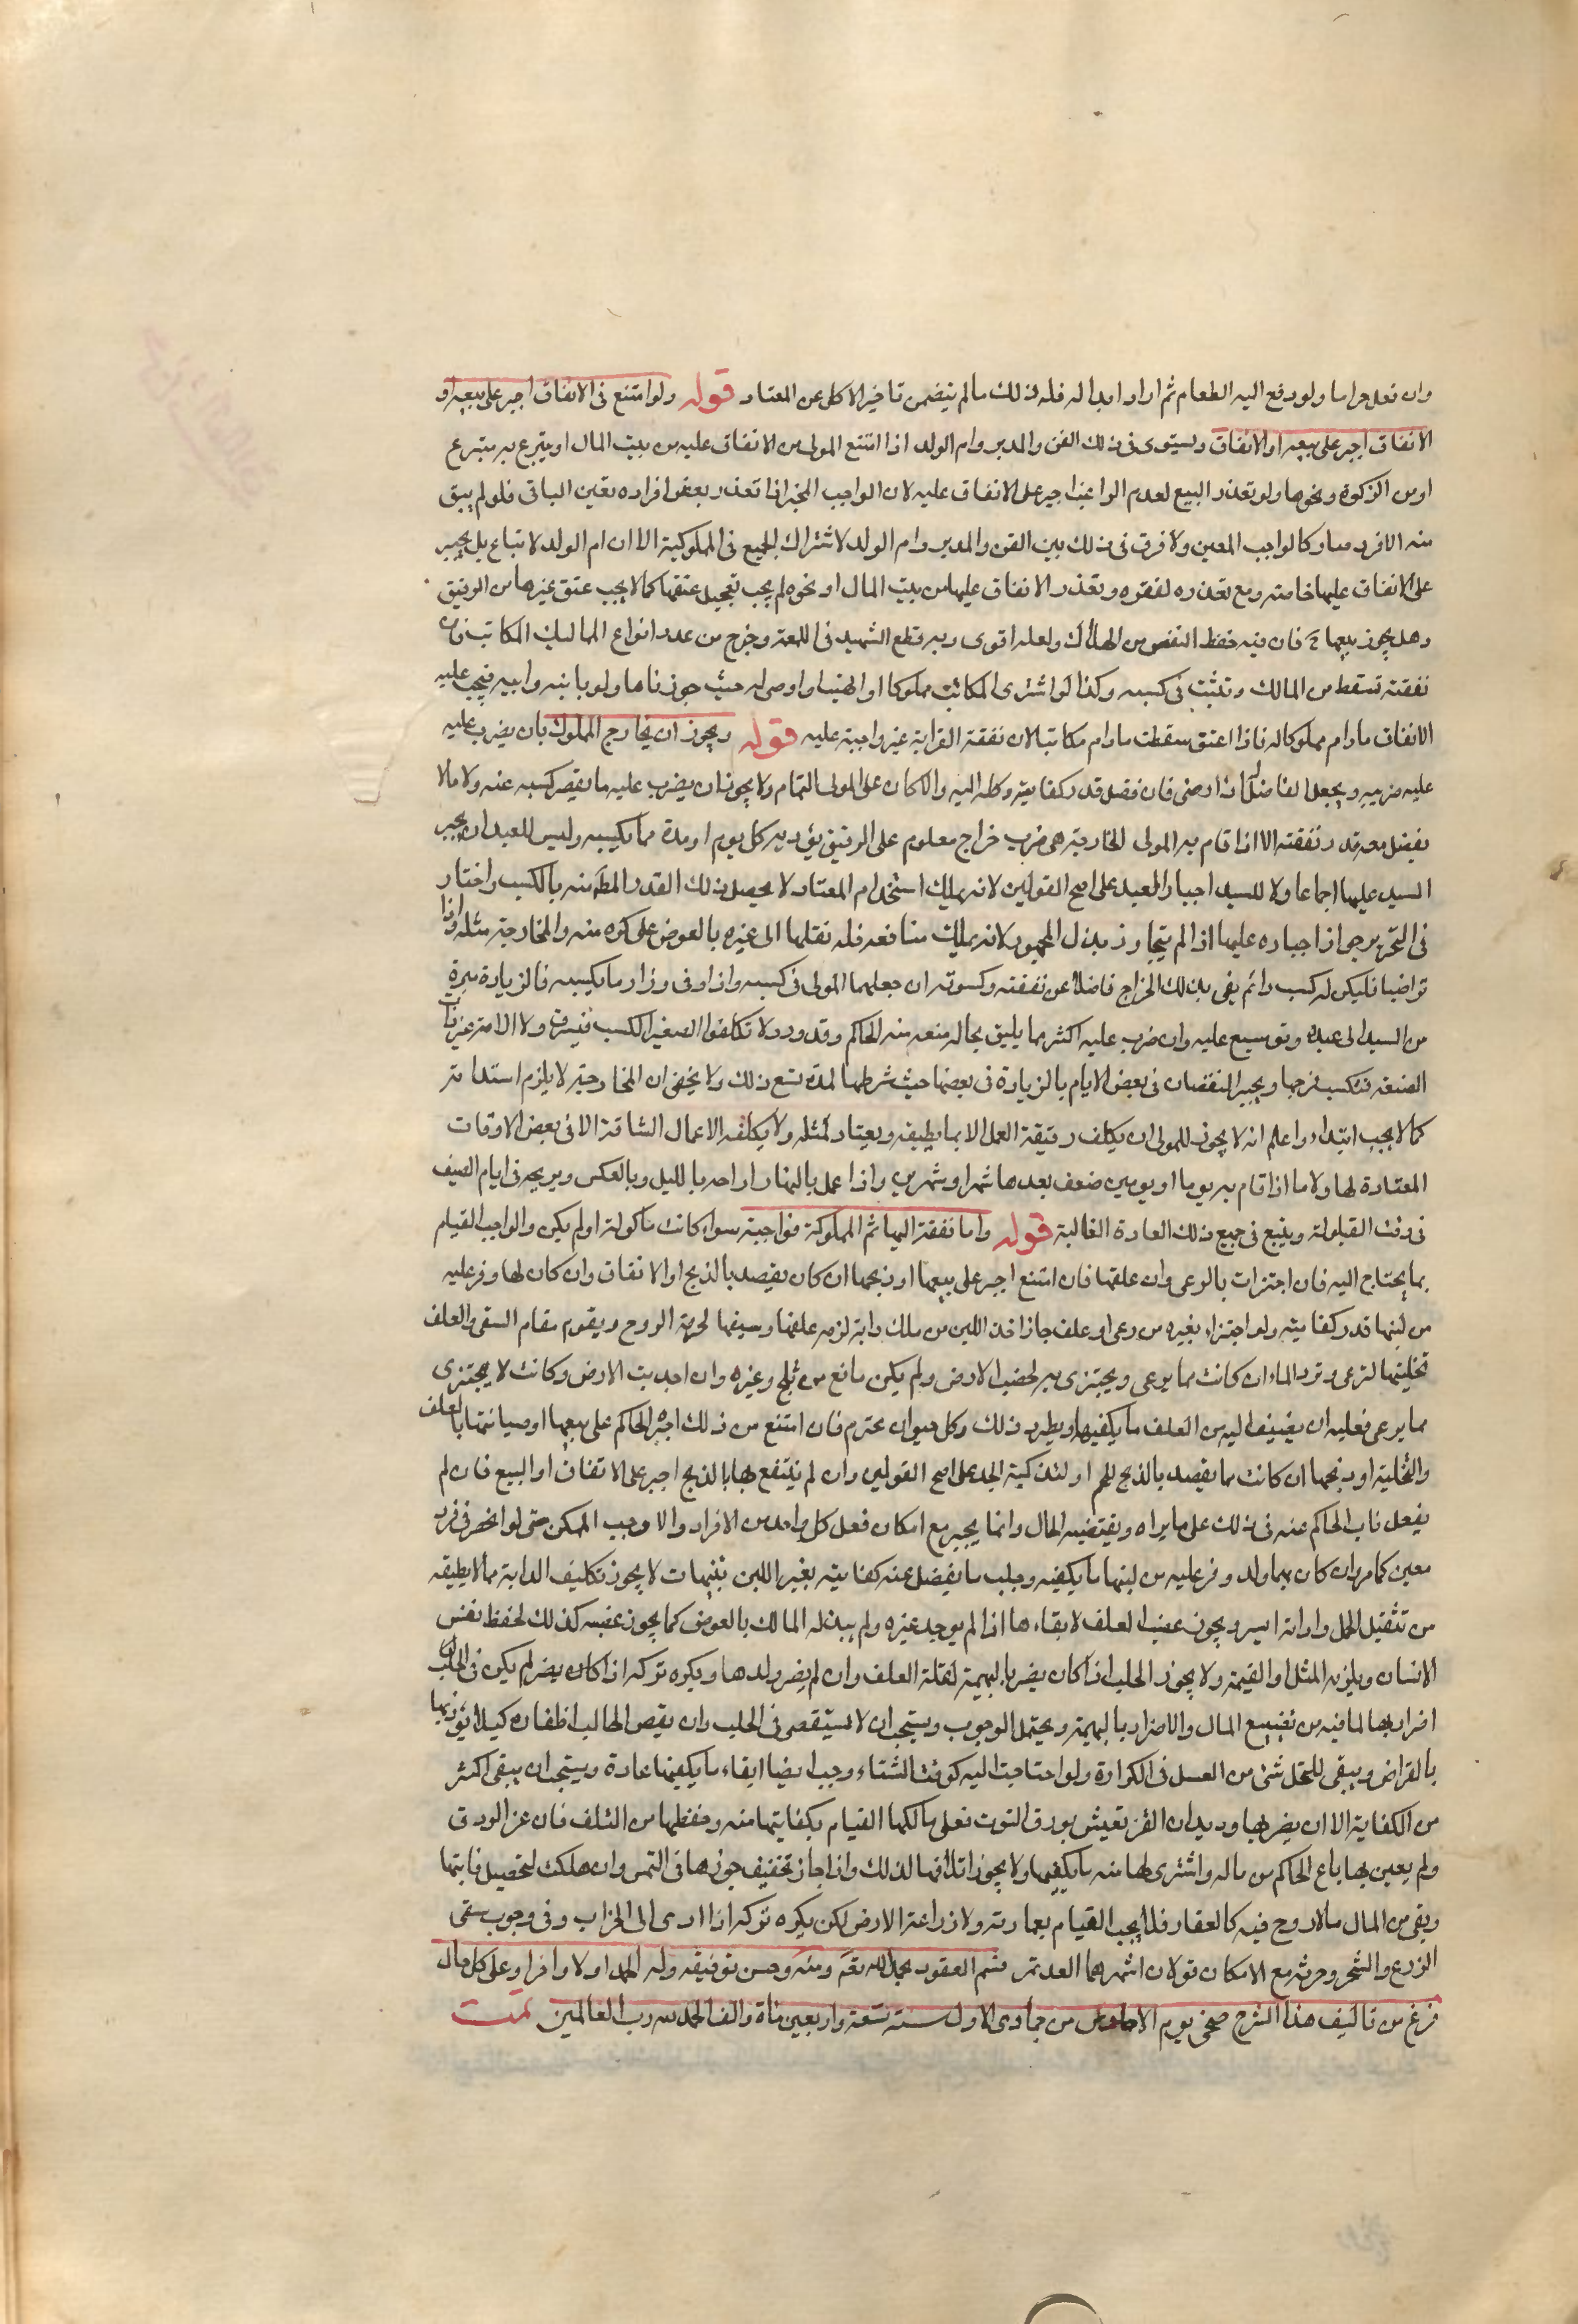 وان فعل حراما ولو دفع اليه الطعام ثم اراد ابداله فله ذلك ما لم يتضمن تاخير الاكل عن المعتاد قوله ولو امتنع فى الانفاق اجبر على بيعه او
الانفاق اجبر على بيعه او الانفاق ويستوى فى ذلك القن والمدبر وام الولد اذا امتنع المولى من الانفاق عليه من بيت المال او يتبرع به متبرع
او من الزكوة ونحوها ولو تعذر البيع لعدم الراغب اجبر على الانفاق عليه لان الواجب المخير اذا تعذر بعض افراده تعين الباقى فلو لم يبق
منه الا فرد صار كالواجب المعين ولا فرق فى ذلك بين القن والمدبر وام الولد لاشتراك الجميع فى المملوكية الا ان ام الولد لا تباع بل يجبر
على الانفاق عليها خاصة ومع تعذره لفقره وتعذر الانفاق عليها من بيت المال او نحوه لم يجب تعجيل عتقها كما لا يجب عتق غيرها من الرقيق
وهل يجوز بيعها ح فان فيه حفظ النفس من الهلاك ولعله اقوى وبه قطع الشهيد فى اللمعة وخرج من عدد انواع المماليك المكاتب فان
نفقته تسقط من المالك وتثبت فى كسبه وكذا لو اشترى المكاتب مملوكا او اتهب او اوصى له حيث جوزناها ولو بابنه وابيه فيجب عليه
الانفاق ما دام مملوكا له فاذا اعتق سقطت ما دام مكاتبا لان نفقة القرابة غير واجبة عليه قوله ويجوز ان يخارج المملوك بان يضرب عليه
عليه ضريبه ويجعل الفاضل له اذا رضى فان فضل قدر كفايته وكله اليه والا كان على المولى التمام ولا يجوز ان يضرب عليه ما يقصر كسبه عنه ولا ما لا
يفضل معه قدر نفقته الا اذا قام به المولى المخارجة هى ضرب خراج معلوم على الرقيق يؤديه كل يوم او مدة مما يكسبه وليس للعبد ان يجبر
السيد عليها اجماعا ولا للسيد اجبار العبد على اصح القولين لانه يملك استخدام المعتاد لا تحصيل ذلك القدر المط منه بالكسب واختار
فى التحرير جواز اجباره عليها اذا لم يتجاوز بذل المجهود لانه يملك منافعه فله نقلها الى غيره بالعوض على كره منه والمخارجة مثله واذا
تراضيا فليكن له كسب دائم يفى بذلك الخراج فاضلا عن نفقته وكسوته ان جعلهما المولى فى كسبه واذا وفى وزاد ما يكسبه فالزيادة مبرة
من السيد الى عبده وتوسيع عليه وان ضرب عليه اكثر مما يليق بحاله منعه منه الحاكم وقد ورد لا تكلفوا الصغير الكسب فيسرق ولا الامة غير ذات
الصنعة فتكسب بفرجها ويجبر النقصان فى بعض الايام بالزيادة فى بعضها حيث شرطها لمدة تسع ذلك ولا يخفى ان المخارجة لا يلزم استدامته
كما لا يجب ابتداء واعلم انه لا يجوز للمولى ان يكلف رقيقه العمل الا بما يطيقه ويعتاد لمثله ولا يكلفه الاعمال الشاقة الا فى بعض الاوقات
المعتادة لها ولا ما اذا قام به يوما او يومين ضعف بعدها شهرا وشهرين واذا عمل بالنهار اراحه بالليل وبالعكس ويريحه فى ايام الصيف
فى وقت القيلولة ويتبع فى جميع ذلك العادة الغالبة قوله واما نفقة البهائم المملوكة فواجبة سواء كانت ماكولة او لم يكن والواجب القيام
بما يحتاج اليه فان اجتزات بالرعى وان علفها فان امتنع اجبر على بيعها او ذبحها ان كان يقصد بالذبح او الانفاق وان كان لها وفر عليه
من لبنها قدر كفايته ولو اجتزاء بغيره من رعى او علف جاز اخذ اللبن من ملك دابة لزمه علفها وسقيها لحرمة الروح ويقوم مقام السقى والعلف
تخليتها لترعى وترد الماء ان كانت مما يرعى ويجتزى به لخضب الارض ولم يكن مانع من ثلج وغيره وان اجدبت الارض وكانت لا يجتزى
مما يرعى فعليه ان يضيف اليه من العلف ما يكفيها ويطرد ذلك وكل حيوان محترم فان امتنع من ذلك اجبره الحاكم على بيعها او صيانتها بالعلف
والتخلية او ذبحها ان كانت مما يقصد بالذبح للحم او لتذكية الجلد على اصح القولين وان لم ينتفع بها بالذبح اجبر على الانفاق او البيع فان لم
يفعل ناب الحاكم عنه فى ذلك على ما يراه ويقتضيه الحال وانما يجبر مع امكان فعل كل واحد من الافراد والا وجب الممكن حتى لو انحصر فى فرد
معين كما مر وان كان بها ولد وفر عليه من لبنها ما يكفيه وحلب ما يفضل عنه كفايته بغير اللبن تنبيهات لا يجوز تكليف الدابة مما لا يطيقه
من تثقيل الحمل وادامة السير ويجوز غصب العلف لابقاءها اذا لم يوجد غيره ولم يبذله المالك بالعوض كما يجوز غصبه كذلك لحفظ نفس
الانسان ويلزمه المثل او القيمة ولا يجوز الحلب اذا كان يضر بالبهيمة لقلة العلف وان لم يضر ولدها ويكره تركه اذا كان يضر لم يكن فى الحلب
اضرار بها لما فيه من تضييع المال والاضرار بالبهيمة ويحتمل الوجوب ويستحب ان لا يستقصى فى الحلب وان يقص الحالب اظفاره كيلا يؤذيها
بالقراض ويبقى للنحل شئ من العسل فى الكوارة ولو احتاجت اليه كوقت الشتاء وجب ايضا ابقاء ما يكفيها عادة ويستحب ان يبقى اكثر
من الكفاية الا ان يضر بها وديدان القز تعيش بورق التوت فعلى مالكها القيام بكفايتها منه وحفظها من التلف فان عز الورق
ولم يعين بها باع الحاكم من ماله واشترى لها منه ما يكفيها ولا يجوز اتلافها لذلك واذا جاز تخفيف جوزها فى الشمس وان هلكت لتحصيل فايتها
وبقى من المال ما لا روح فيه كالعقار فلا يجب القيام بعمارته ولا زراعة الارض لكن يكره تركه اذا ادى الى الخراب وفى وجوب سقى
الزرع والشجر وحرثه مع الامكان قولان اشهرهما العدم تم قسم العقود بحمد الله تعم ومنه وحسن توفيقه وله الحمد اولا واخرا وعلى كل حال
فرغ من تاليف هذا الشرح ضحى يوم من جمادى الاول سنة تسعة واربعين ماة والف الحمد لله رب العالمين تمت